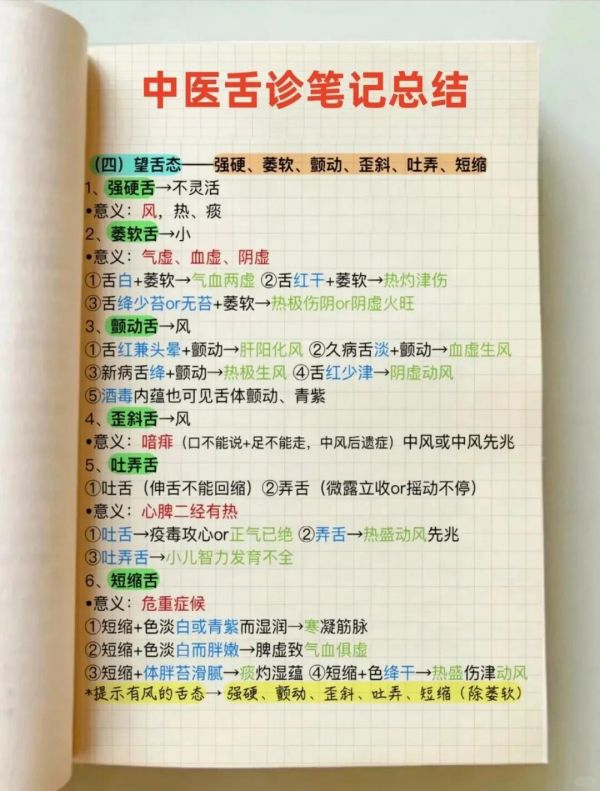 中医舌诊笔记总结
（四）望舌态——强硬、萎软、颤动、歪斜、吐弄、短缩
1、强硬舌→不灵活
•意义：风，热、痰
2、萎软舌→小
•意义：气虚、血虚、阴虚
①舌白+萎软→气血两虚 ②舌红干+萎软→热灼津伤
③舌绛少苔or无苔+萎软→热极伤阴or阴虚火旺
3、颤动舌→风
①舌红兼头晕+颤动→肝阳化风 ②久病舌淡+颤动→血虚生风
③新病舌绛+颤动→热极生风 ④舌红少津→阴虚动风
⑤酒毒内蕴也可见舌体颤动、青紫
4、歪斜舌→风
•意义：喑痱（口不能说+足不能走，中风后遗症）中风或中风先兆
5、吐弄舌
①吐舌（伸舌不能回缩）②弄舌（微露立收or摇动不停）
•意义：心脾二经有热
①吐舌→疫毒攻心or正气已绝 ②弄舌→热盛动风先兆
③吐弄舌→小儿智力发育不全
6、短缩舌
•意义：危重症候
①短缩+色淡白或青紫而湿润→寒凝筋脉
②短缩+色淡白而胖嫩→脾虚致气血俱虚
③短缩+体胖苔滑腻→痰灼湿蕴 ④短缩+色绛干→热盛伤津动风
*提示有风的舌态→ 强硬、颤动、歪斜、吐弄、短缩（除萎软）